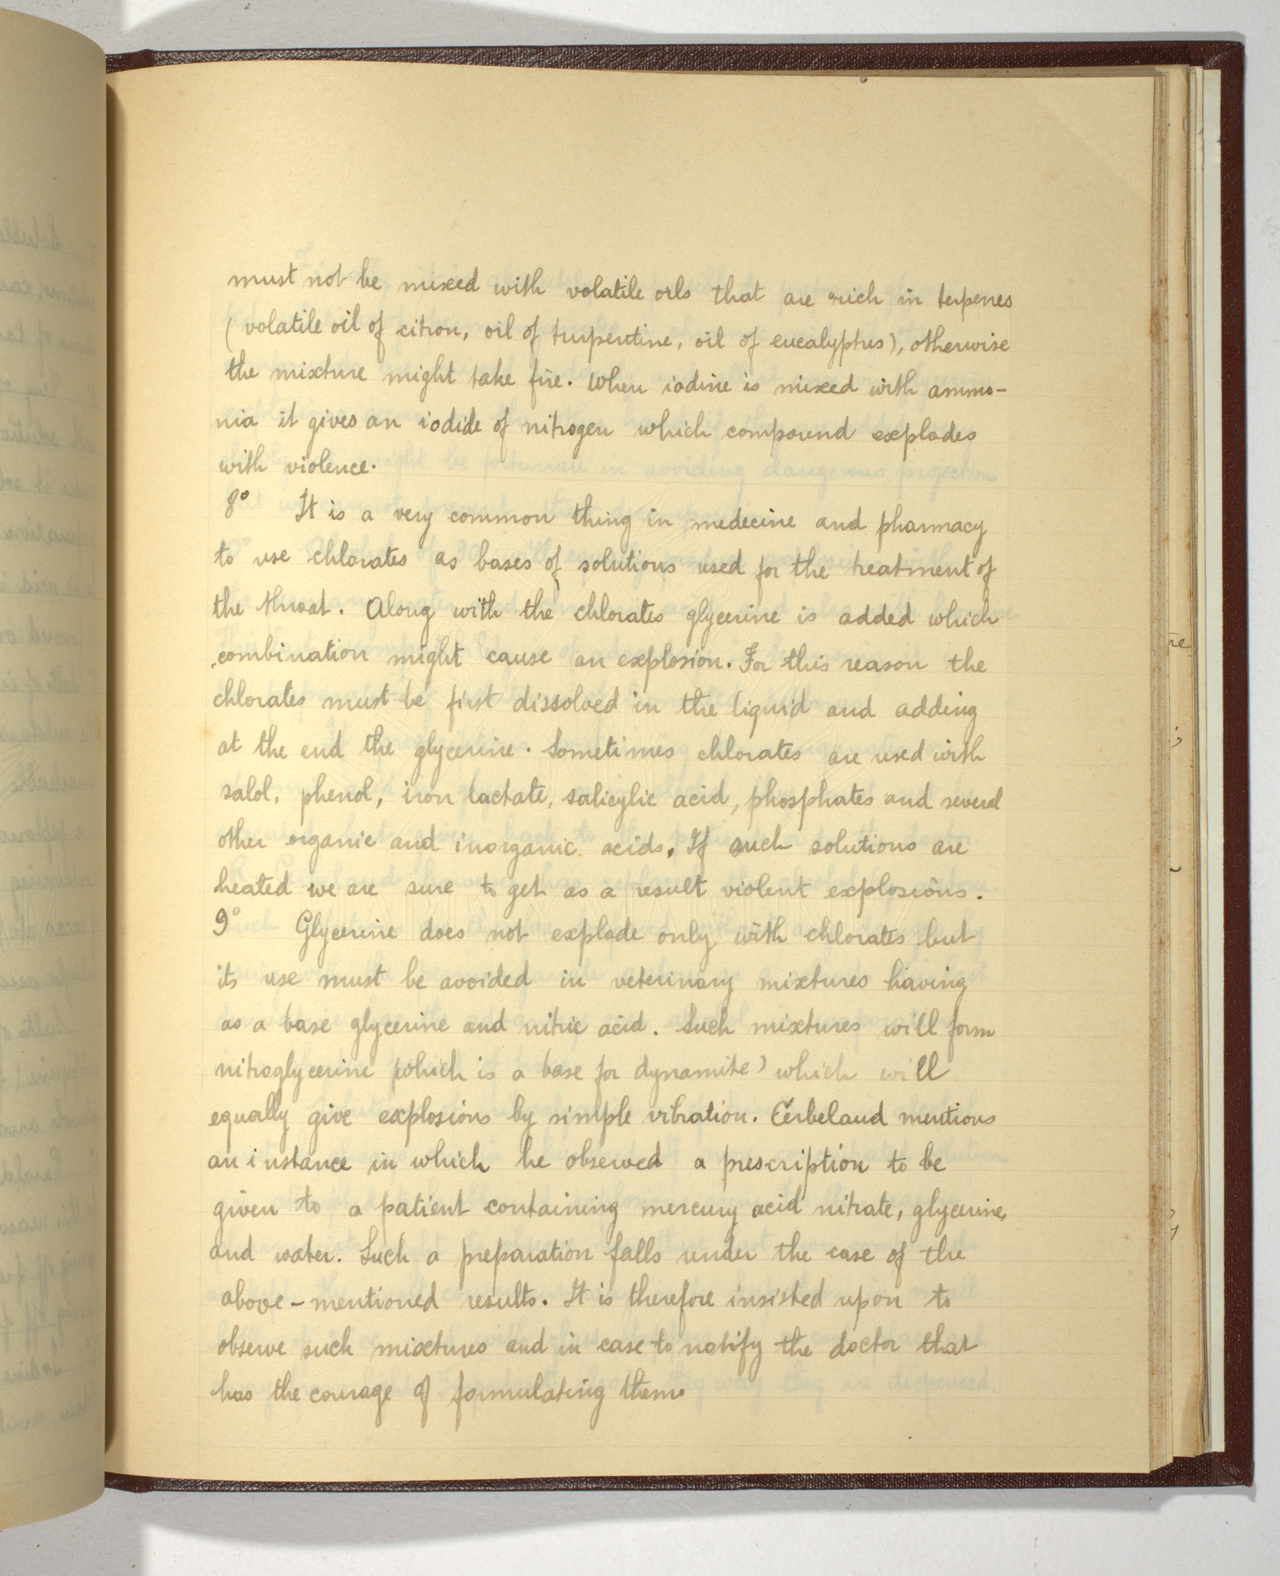 must not be mixed with volatile oils that are rich in terpenes
(volatile oil of citron, oil of turpentine, oil of eucalyptus), otherwise
the mixture might take fire. When iodine is mixed with ammo-
nia it gives an iodide of nitrogen which compound explodes
with violence.
8° It is a very common thing in medecine and pharmacy
to use chlorates as bases of solutions used for the treatment of
the throat. Along with the chlorates glycerine is added which
combination might cause an explosion. For this reason the
chlorates must be first dissolved in the liquid and adding
at the end the glycerine. Sometimes chlorates are used with
salol, phenol, iron lactate, salicylic acid, phosphates and several
other organic and inorganic acids. If such solutions are
heated we are sure to get as a result violent explosions.
9° Glycerine does not explode only with chlorates but
its use must be avoided in veterinary mixtures having
as a base glycerine and nitric acid. Such mixtures will form
nitroglycerine (which is a base for dynamite) which will
equally give explosions by simple vibration. Cerbeland mentions
an instance in which he observed a prescription to be
given to a patient containing mercury acid nitrate, glycerine,
and water. Such a preparation falls under the case of the
above-mentioned results. It is therefore insisted upon to
observe such mixtures and in case to notify the doctor that
has the courage of formulating them.